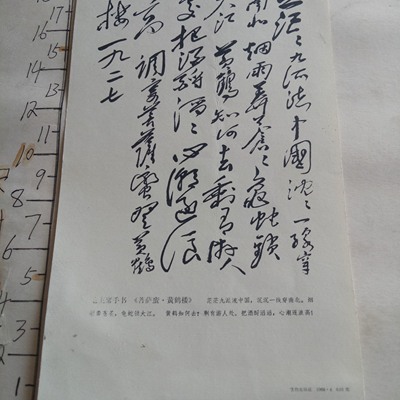 茫〻九派流中國沉〻一線穿
南北烟雨莽蒼〻龜蛇鎖
大江 黃鶴知何去剩有游人
處把酒酹滔〻心潮逐浪
高 調寄菩薩蠻 登黃鶴
樓 一九二七
主席手书 《菩萨蛮·黄鹤楼》 茫茫九派流中国,沉沉一线穿南北。烟
雨莽苍苍,龟蛇锁大江。 黄鹤知何去?剩有游人处。把酒酹滔滔,心潮逐浪高!
17
16
15
14
13
12
11
10
9
8
7
6
5
4
3
2